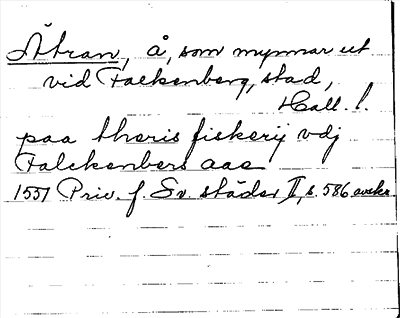 Ätran, å, som mynnar ut
vid Falkenberg, stad,
Hall. l.
paa theris fiskerij vdj
Falckenbers aae
1551 Priv. f. Sv. städer II, s. 586 avskr.